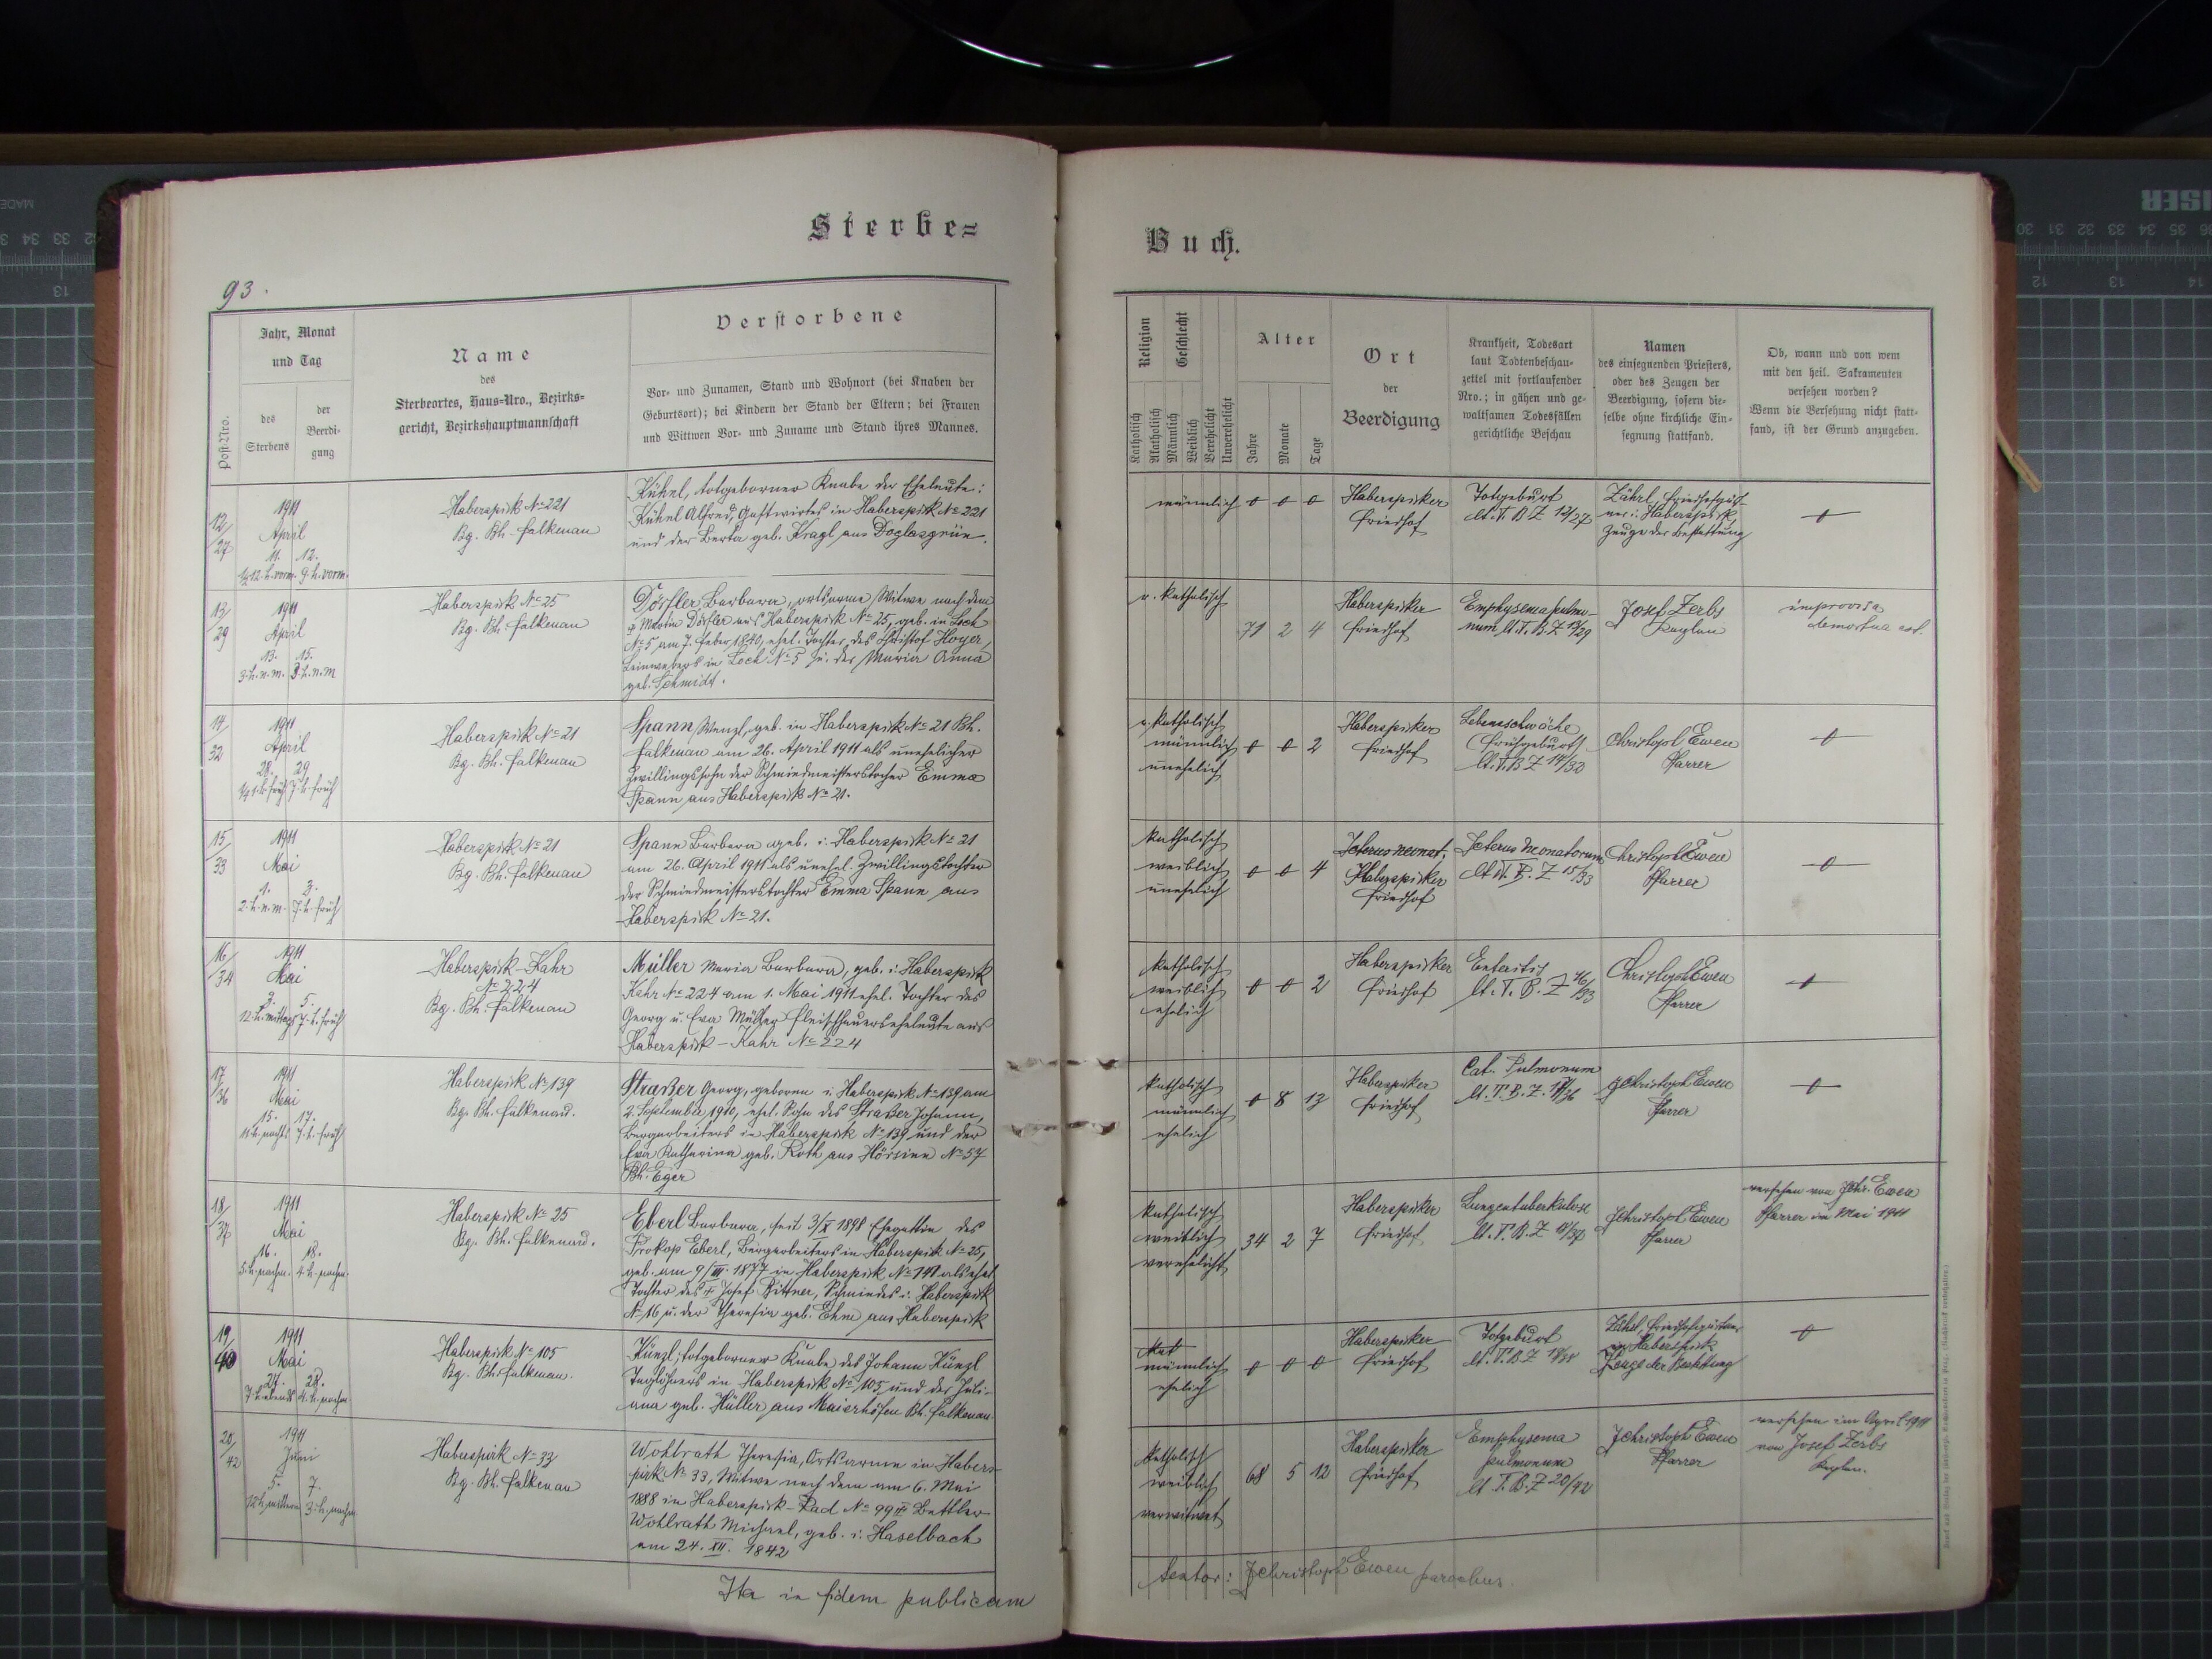 Sterbe=
93.
Post-Nro.
Jahr, Monat
und Tag
des
Sterbens
der
Beerdi-
gung
Name
des
Sterbeortes, Haus-Nro., Bezirks-
gericht, Bezirkshauptmannschaft
Verstorbene
Vor- und Zunamen, Stand und Wohnort (bei Knaben der
Geburtsort); bei Kindern der Stand der Eltern; bei Frauen
und Wittwen Vor- und Zuname und Stand ihres Mannes.
12/27
1911
April
11. 12.
1/2 12. h. vorm. 9. h. vorm.
Haberspirk No 221
Bg. Bh. Falkenau
Kühnl, totgeborner Knabe der Eheleute:
Kühnl Alfred, Gastwirtes in Haberspirk No 221
und der Berta geb. Kragl aus Doglasgrün.
13/29
1911
April
13. 15.
3. h. n. m. 3. h. n. m
Haberspirk No 25
Bg. Bh. Falkenau
Dörfler Barbara, ortsarme Witwe nach dem
† Martin Dörfler aus Haberspirk No 25, geb. in Loch
No 5 am 7. Feber 1840, ehel. Tochter des Christof Hoyer,
Leinwebers in Loch No 5 u. der Maria Anna
geb. Schmidt.
14/32
1911
April
28. 29.
früh 7. h. früh
Haberspirk No 21
Bg. Bh. Falkenau
Spann Wenzl, geb. in Haberspirk No 21 Bh.
Falkenau am 26. April 1911 als unehelicher
Zwillingssohn der Schmiedmeisterstocher Emma
Spann aus Haberspirk No 21.
15/33
1911
Mai
1. 3.
2. h. n. m. 7. h. früh
Haberspirk No 21
Bg. Bh. Falkenau
Spann Barbara geb. i. Haberspirk No 21
am 26. April 1911 als unehel. Zwillingstochter
der Schmiedmeisterstochter Emma Spann aus
Haberspirk No 21.
16/34
1911
Mai
3. 5.
12. h. mittag 7. h. früh
Haberspirk-Kahr
No 224
Bg. Bh. Falkenau
Müller Maria Barbara, geb. i. Haberspirk
Kahr No 224 am 1. Mai 1911 ehel. Tochter des
Georg u. Eva Müller Fleischhauerseheleute aus
Haberspirk-Kahr No 224
17/36
1911
Mai
15. 17.
11 h. nachts 7. h. früh
Haberspirk No 139
Bg. Bh. Falkenau.
Straßer Georg, geboren i. Haberspirk No 139 am
2. September 1910, ehel. Sohn des Straßer Johann,
Bergarbeiters in Haberspirk No 139 und der
Eva Katharina geb. Roth aus Hörsinn No 57
Bh. Eger
18/37
1911
Mai
16. 18.
5. h. nachm. 4. h. nachm.
Haberspirk No 25
Bg. Bh. Falkenau.
Eberl Barbara, seit 3/X 1898 Ehegattin des
Prokop Eberl, Bergarbeiters in Haberspirk No 25,
geb. am 9/III. 1877 in Haberspirk No 141 als ehel.
Tochter des † Josef Bittner, Schmiedes i. Haberspirk
No 16 u. der Theresia geb. Ehm aus Haberspirk
19/40
1911
Mai
27. 28.
7 h. abends 4. h. nachm.
Haberspirk No 105
Bg. Bh. Falkenau.
Künzl, totgeborner Knabe des Johann Künzl
Taglöhners in Haberspirk No 105 und der Juli-
ana geb. Hüller aus Maierhöfen Bh. Falkenau.
20/42
1911
Juni
5. 7.
3. h. nachm.
Haberspirk No 33
Bg. Bh. Falkenau
Wohlrath Theresia, Ortsarme in Habers-
pirk No 33, Witwe nach dem am 6. Mai
1888 in Haberspirk-Rad No 99 † Bettler
Wohlrath Michael, geb. i. Haselbach
am 24. XII. 1842
Ita in fidem publicam
Buch.
Religion
Katholisch
Akatholisch
Geschlecht
Männlich
Weiblich
Verehelicht
Unverehelicht
Alter
Jahre
Monate
Tage
Ort
der
Beerdigung
Krankheit, Todesart
laut Todtenbeschau-
zettel mit fortlaufender
Nro.; in gähen und ge-
waltsamen Todesfällen
gerichtliche Beschau
Namen
des einsegnenden Priesters,
oder des Zeugen der
Beerdigung, sofern die-
selbe ohne kirchliche Ein-
segnung stattfand.
Ob, wann und von wem
mit den heil. Sakramenten
versehen worden?
Wenn die Versehung nicht statt-
fand, ist der Grund anzugeben.
männlich 0 0 0
Haberspirker
Friedhof
Totgeburt
lt. T. B. Z 12/27
Zährl, Friedhofgärt-
ner i. Haberspirk
Zeuge der Bestattung
r. katholisch
71 2 4
Haberspirker
Friedhof
Emphysema pulmo-
num lt. T. B. Z 13/29
Josef Zerbs
Kaplan
improvisa
demortua est.
r. katholisch
männlich
unehelich
0 0 2
Haberspirker
Friedhof
Lebensschwäche
(Frühgeburt)
lt. T. B Z 14/32
Christoph Ewen
Pfarrer
katholisch
weiblich
unehelich
0 0 4
Icterus neonat.
Haberspirker
Friedhof
Icterus neonatorum
lt. T. B. Z 15/33
Christoph Ewen
Pfarrer
katholisch
weiblich
ehelich
0 0 2
Haberspirker
Friedhof
Enteritis
lt. T. B. Z 16/33
Christoph Ewen
Pfarrer
katholisch
männlich
ehelich
0 8 13
Haberspirker
Friedhof
Cat. Pulmonum
lt. T. B. Z. 17/36
JChristoph Ewen
Pfarrer
katholisch
weiblich
verehelicht
34 2 7
Haberspirker
Friedhof
Lungentuberkulose
lt. T. B. Z 18/37
JChristoph Ewen
Pfarrer
versehen von JChr. Ewen
Pfarrer im Mai 1911
kat
männlich
ehelich
0 0 0
Haberspirker
Friedhof
Totgeburt
lt. T. B Z
Zährl, Friedhofgärtner
in Haberspirk
Zeuge der Bestattung
katholisch
weiblich
verwitwet
68 5 12
Haberspirker
Friedhof
Emphysema
pulmonum
lt T. B. Z 20/42
JChristoph Ewen
Pfarrer
versehen im April 1911
von Josef Zerbs
Kaplan.
testor: JChristoph Ewen parochus.